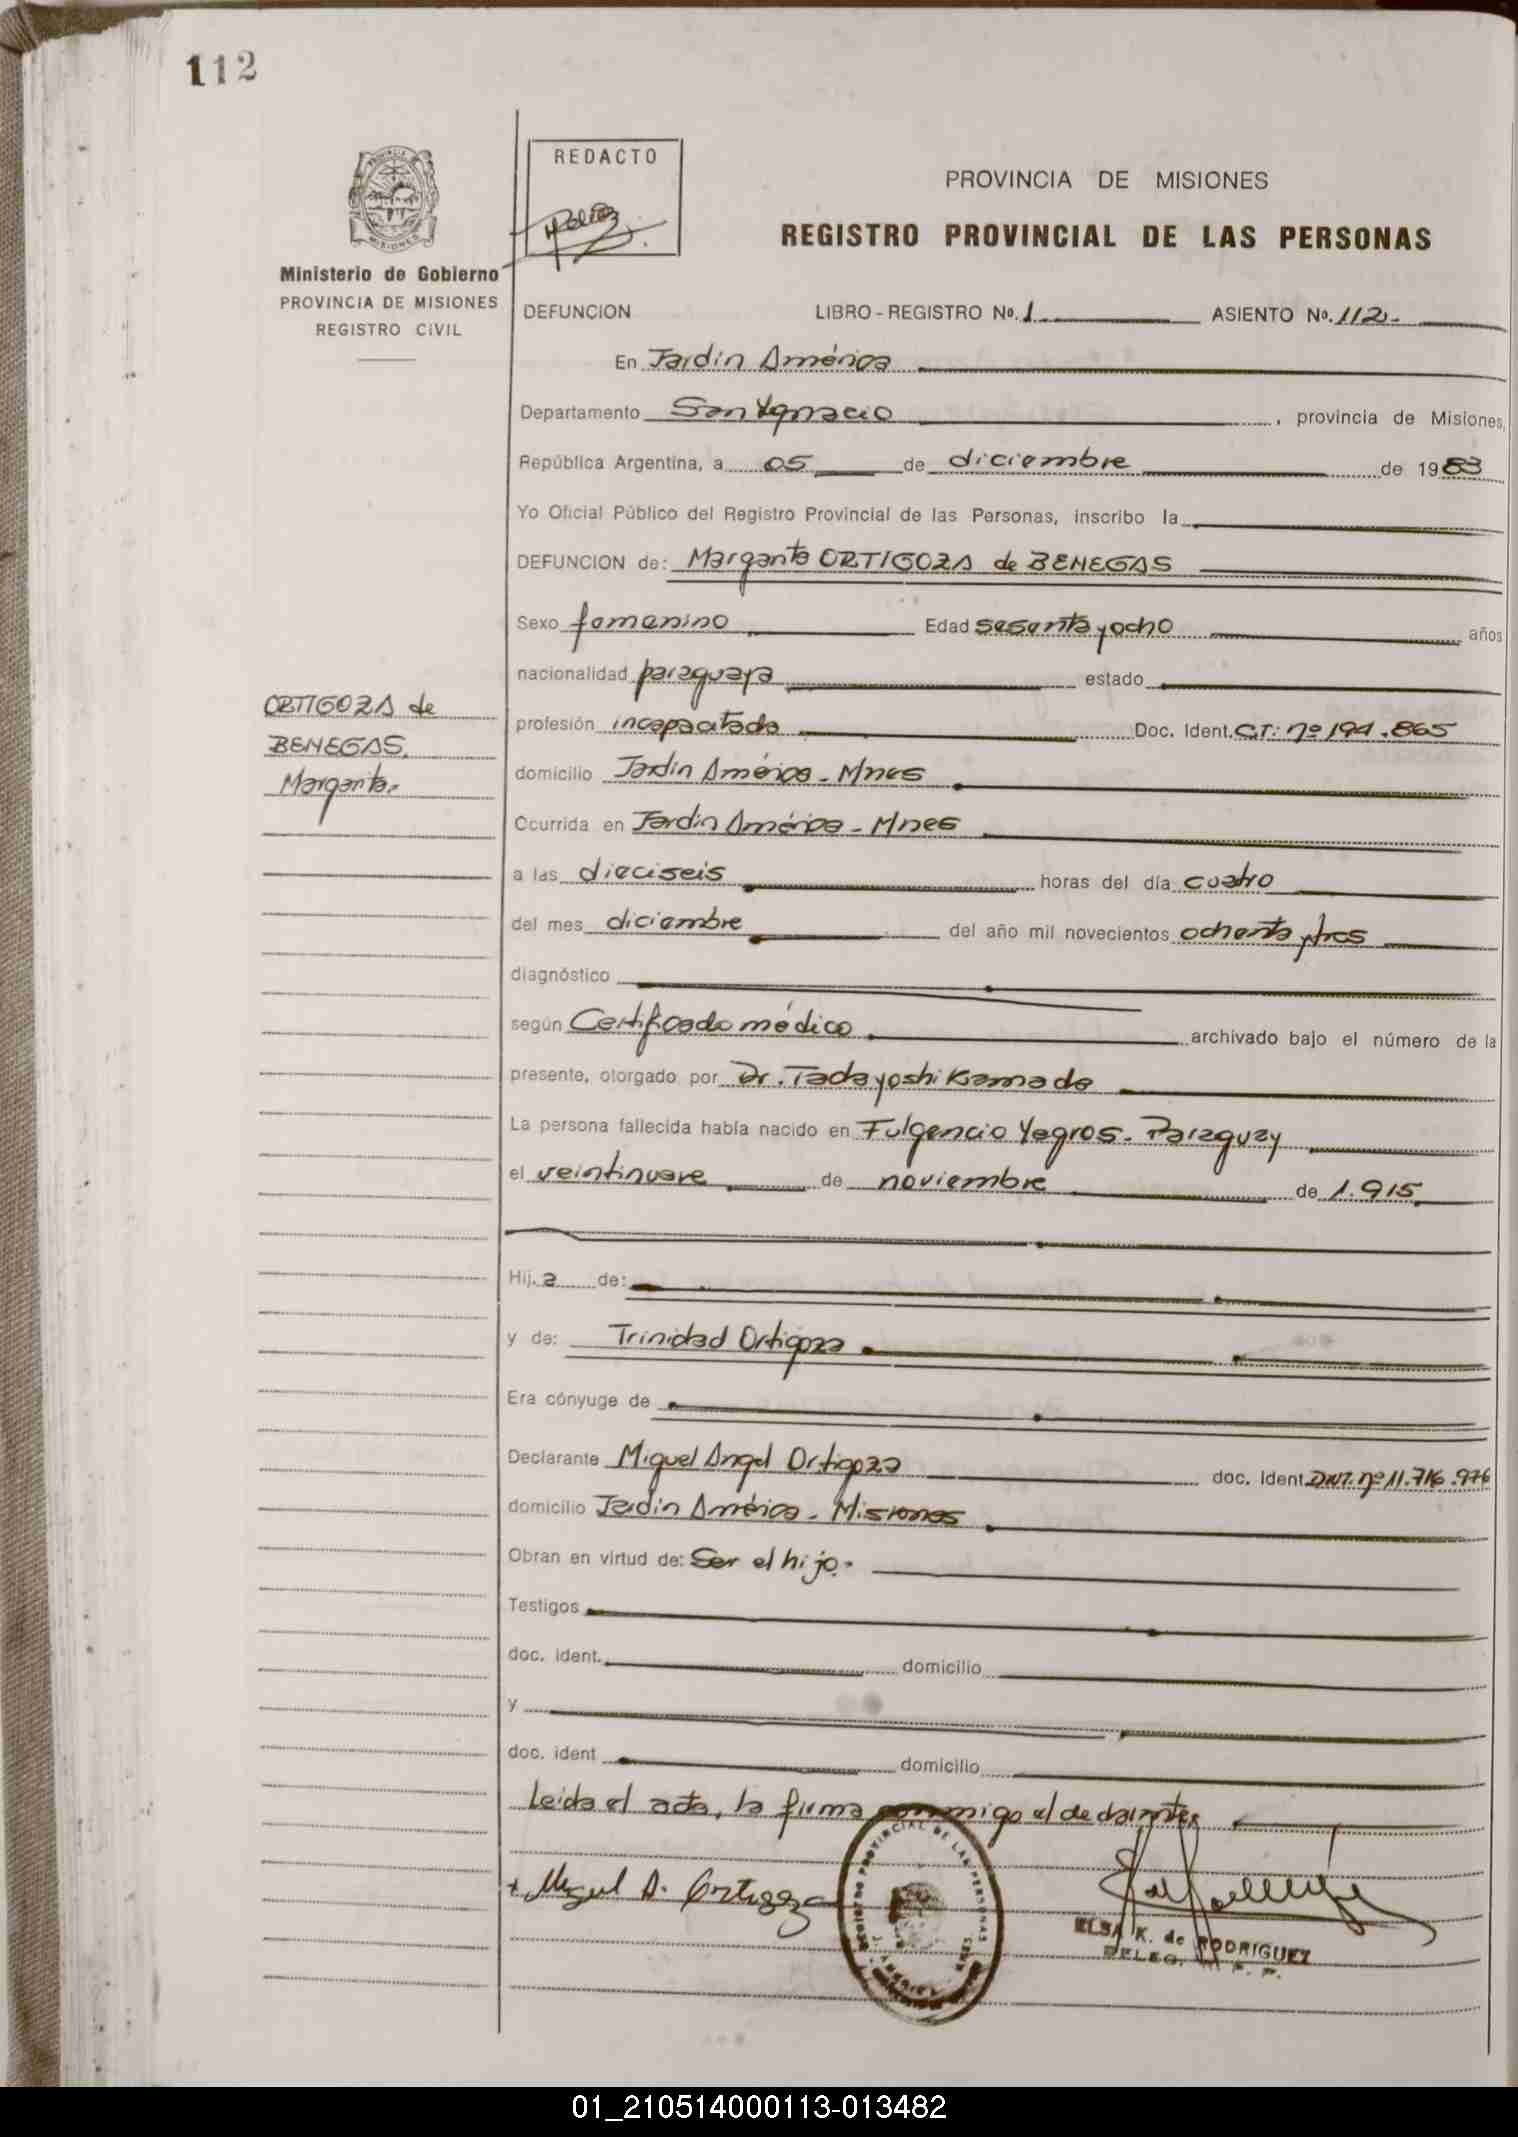 112
PROVINCIA DE
MISIONES
Ministerio de Gobierno
PROVINCIA DE MISIONES
REGISTRO CIVIL
REDACTO
PROVINCIA DE MISIONES
REGISTRO PROVINCIAL DE LAS PERSONAS
DEFUNCION LIBRO - REGISTRO Nº. 1 ASIENTO Nº. 112.-
En Jardín América
Departamento San Ygnacio, provincia de Misiones,
República Argentina, a 05 de diciembre de 1983
Yo Oficial Público del Registro Provincial de las Personas, inscribo la
DEFUNCION de: Margarita ORTIGOZA de BENEGAS
Sexo femenino Edad sesenta y ocho años
nacionalidad paraguaya estado
ORTIGOZA de
BENEGAS,
Margarita.
profesión incapacitada Doc. Ident. C.I: nº 194.865
domicilio Jardín América - Mnes
Ocurrida en Jardín América - Mnes
a las dieciseis horas del día cuatro
del mes diciembre del año mil novecientos ochenta y tres
diagnóstico
según Certificado médico archivado bajo el número de la
presente, otorgado por Dr. Tadayoshi Kamada
La persona fallecida había nacido en Fulgencio Yegros - Paraguay
el veintinueve de noviembre de 1.915
Hij a de:
y de: Trinidad Ortigoza
Era cónyuge de
Declarante Miguel Angel Ortigoza doc. Ident. DNI. nº 11.716.976
domicilio Jardín América - Misiones
Obran en virtud de: Ser el hijo.-
Testigos
doc. ident. domicilio
y
doc. ident domicilio
Leída el acta, la firma conmigo el declarante
Miguel A. Ortigoza
REGISTRO PROVINCIAL DE LAS PERSONAS
ELSA K. de RODRIGUEZ
DELEG. R. P. P.
01_210514000113-013482